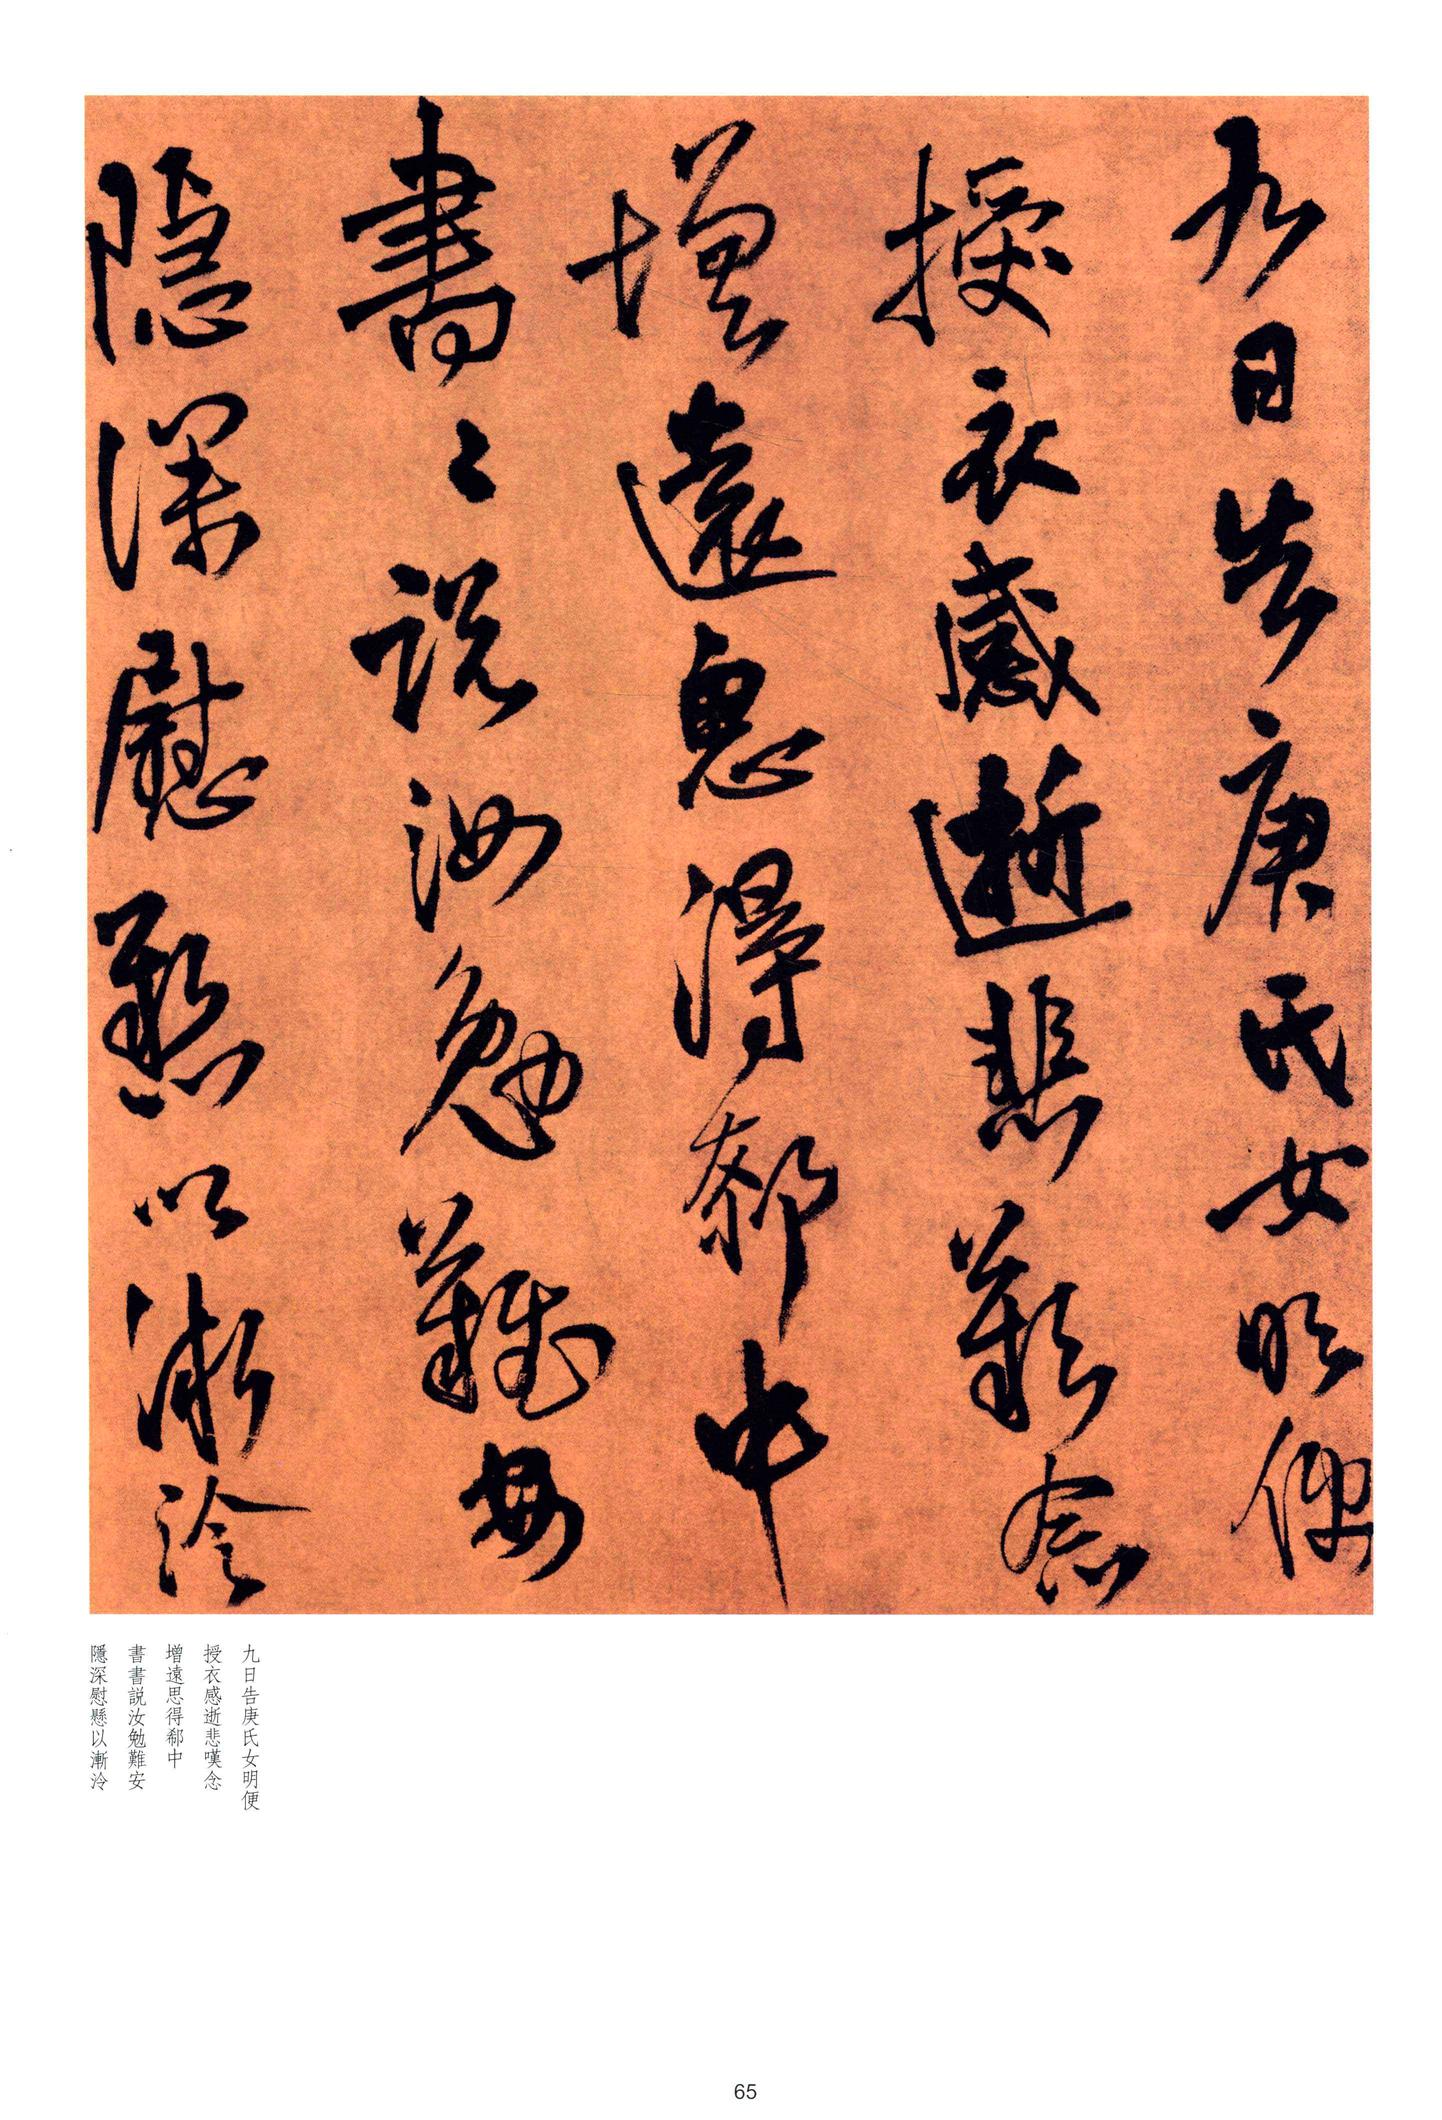 九日告庚氏女明便
授衣感逝悲嘆念
增遠思得郗中
書〻説汝勉難安
隱深慰懸以漸冷
九日告庚氏女明便
授衣感逝悲嘆念
增遠思得郗中
書書説汝勉難安
隱深慰懸以漸泠
65